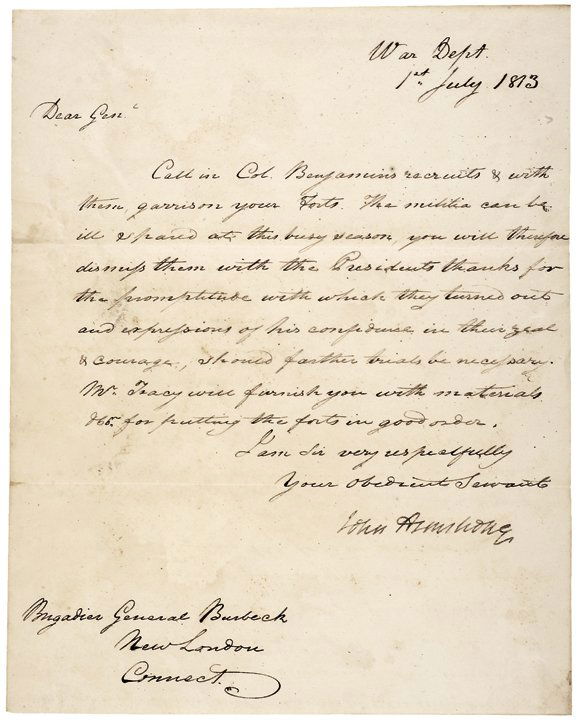 War Dept.
1st July 1813
Dear Genl
Call in Col. Benjamins recruits & with
them, garrison your Forts. The militia can be
ill spared at this busy season, you will therefore
dismiss them with the Presidents thanks for
the promptitude with which they turned out
and expressions of his confidence in their zeal
& courage, should farther trials be necessary.
Mr. Tracy will furnish you with materials
&c. for putting the forts in good order.
I am Sir very respectfully
Your obedient Servant
John Armstrong
Brigadier General Burbeck
New London
Connect.